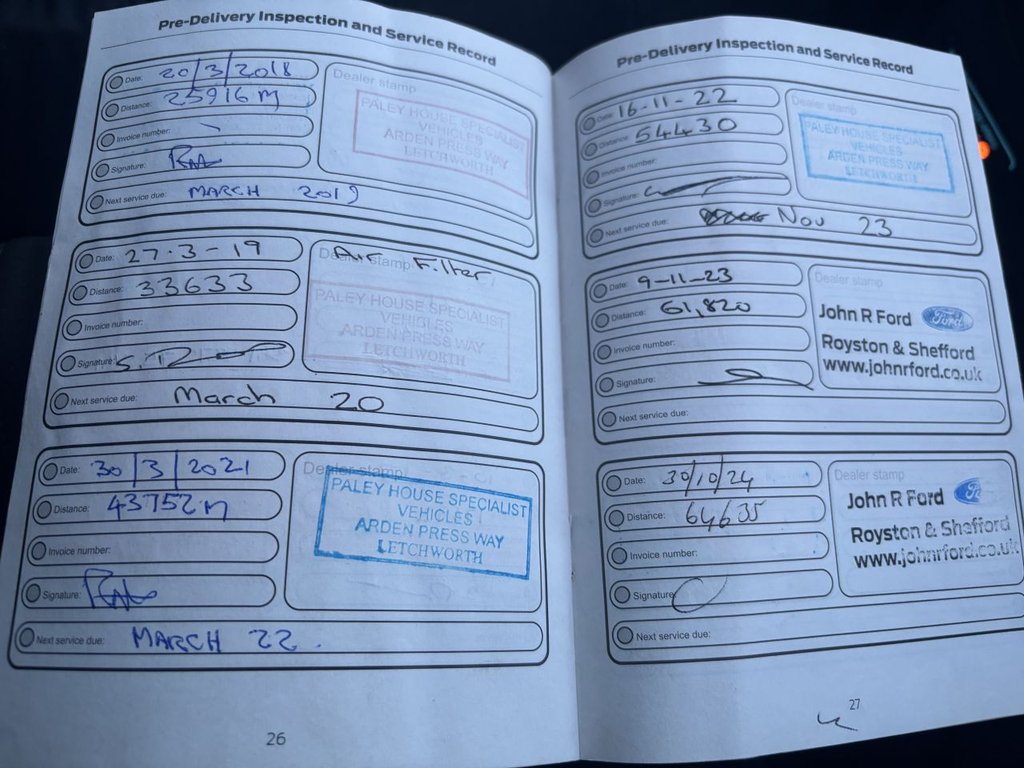 Pre-Delivery Inspection and Service Record
Date: 20/3/2018
Distance: 25916 M
Invoice number:
Signature:
Next service due: MARCH 2019
Dealer stamp
PALEY HOUSE SPECIALIST
VEHICLES
ARDEN PRESS WAY
LETCHWORTH
Date: 27-3-19
Distance: 33633
Invoice number:
Signature:
Next service due: March 20
Dealer stamp
Air Filter
PALEY HOUSE SPECIALIST
VEHICLES
ARDEN PRESS WAY
LETCHWORTH
Date: 30/3/2021
Distance: 43752 M
Invoice number:
Signature:
Next service due: MARCH 22.
Dealer stamp
PALEY HOUSE SPECIALIST
VEHICLES
ARDEN PRESS WAY
LETCHWORTH
26
Pre-Delivery Inspection and Service Record
Date: 16-11-22
Distance: 54430
Invoice number:
Signature:
Next service due: Nov 23
Dealer stamp
PALEY HOUSE SPECIALIST
VEHICLES
ARDEN PRESS WAY
LETCHWORTH
Date: 9-11-23
Distance: 61,820
Invoice number:
Signature:
Next service due:
Dealer stamp
John R Ford Ford
Royston & Shefford
www.johnrford.co.uk
Date: 30/10/24
Distance: 64635
Invoice number:
Signature:
Next service due:
Dealer stamp
John R Ford
Royston & Shefford
www.johnrford.co.uk
27